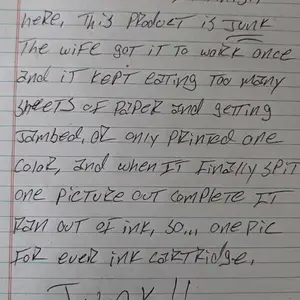 here, This Product is Junk
The wife got it to work once
and it kept eating too many
sheets of paper and getting
jambed, or only printed one
color, and when it finally spit
one picture out complete it
ran out of ink, so... one pic
for ever ink cartridge,
Junk!!